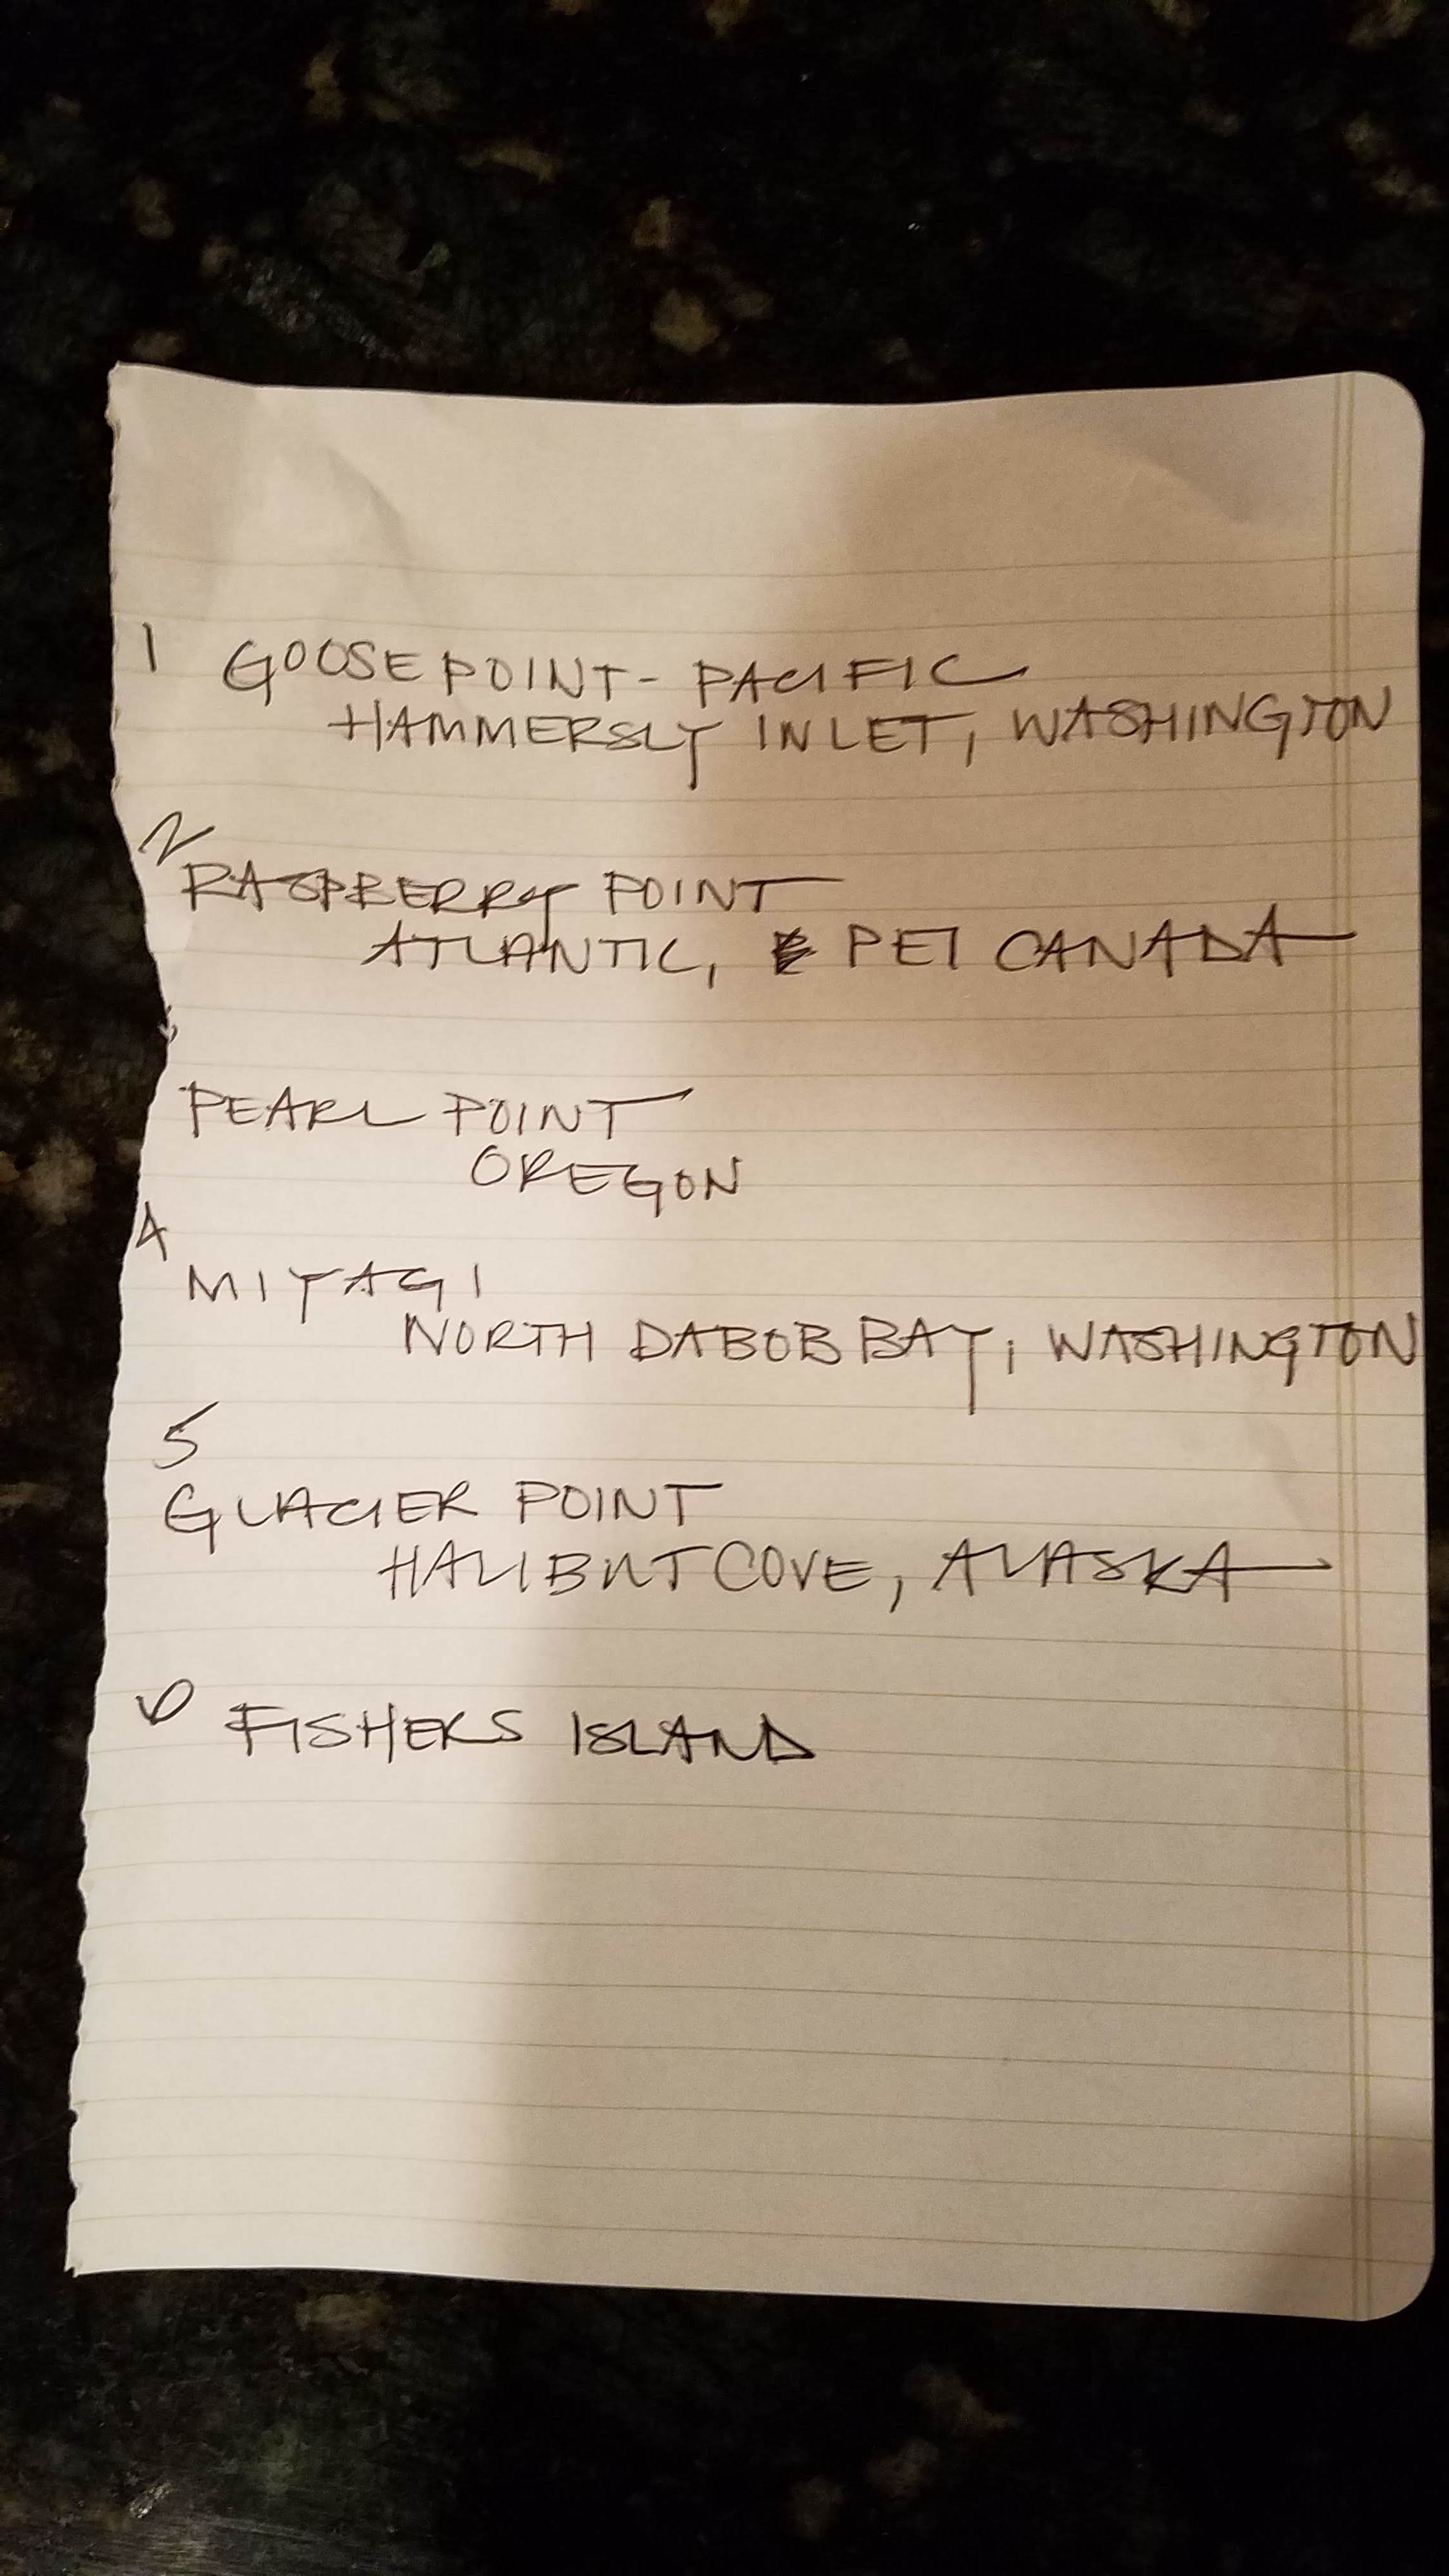 1 GOOSEPOINT - PACIFIC
HAMMERSLY INLET, WASHINGTON
2
RASPBERRY POINT
ATLANTIC, PEI CANADA
PEARL POINT
OREGON
4
MIYAGI
NORTH DABOB BAY, WASHINGTON
5
GLACIER POINT
HALIBUT COVE, ALASKA
6 FISHERS ISLAND